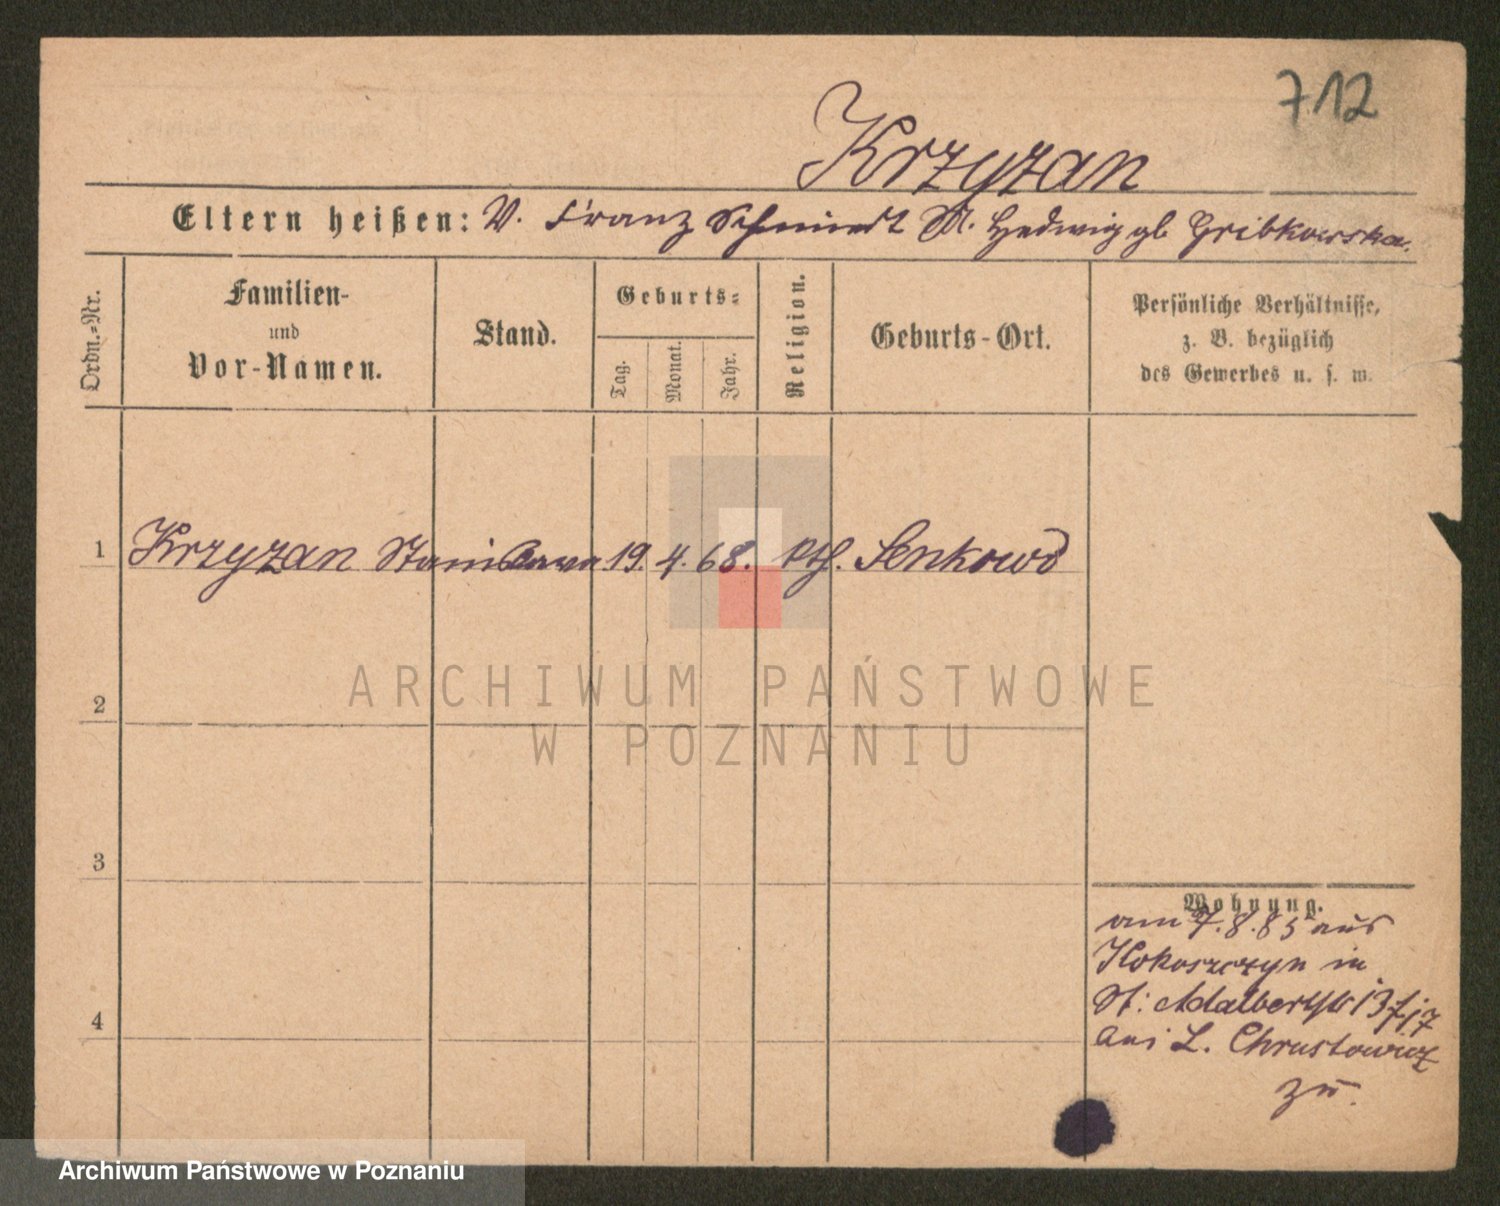 712
Krzyzan
Eltern heißen: V. Franz Schmidt M. Hedwig gb Gribkowska.
Ordn.-Nr.
Familien-
und
Vor-Namen.
Stand.
Geburts-
Tag.
Monat.
Jahr.
Religion.
Geburts-Ort.
Persönliche Verhältnisse,
z. B. bezüglich
des Gewerbes u. s. w.
1 Krzyzan Stanislawa 19. 4. 68. kth. Senkowo
2
3
4
Wohnung.
am 7.8.85 aus
Kokoszczyn in
St: Adalbertstr 13/17
bei L. Chrustowicz
zu.
ARCHIWUM PAŃSTWOWE
W POZNANIU
Archiwum Państwowe w Poznaniu